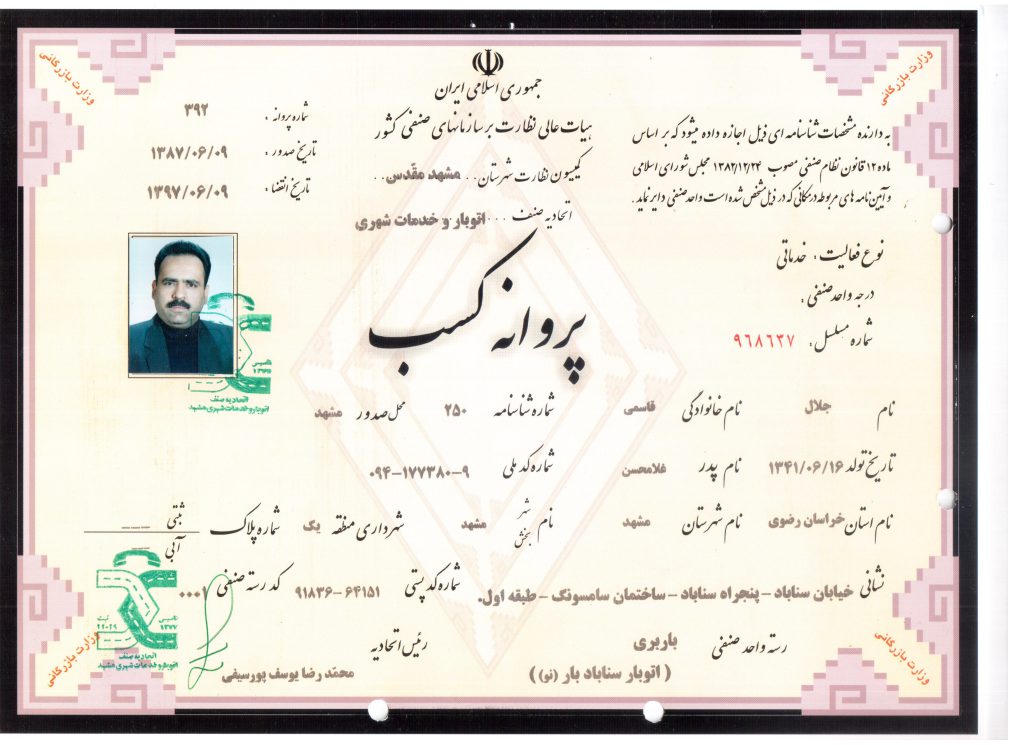 جمهوری اسلامی ایران
هیات عالی نظارت بر سازمانهای صنفی کشور
کمیسیون نظارت شهرستان . . . مشهد مقدس . . .
اتحادیه صنف . . . اتوبار و خدمات شهری
شماره پروانه : ۳۹۲
تاریخ صدور : ۱۳۸۷/۰۶/۰۹
تاریخ انقضاء : ۱۳۹۷/۰۶/۰۹
به دارنده مشخصات شناسنامه ای ذیل اجازه داده میشود که بر اساس
ماده ۱۲ قانون نظام صنفی مصوب ۱۳۸۲/۱۲/۲۴ مجلس شورای اسلامی
و آیین نامه های مربوطه در مکانی که در ذیل مشخص شده است واحد صنفی دایر نماید .
نوع فعالیت : خدماتی
درجه واحد صنفی :
شماره مسلسل : ۹۶۸۶۳۷
پروانه کسب
نام جلال نام خانوادگی قاسمی شماره شناسنامه ۲۵۰ محل صدور مشهد
تاریخ تولد ۱۳۴۱/۰۶/۱۶ نام پدر غلامحسن شماره کد ملی ۰۹۴-۱۷۷۳۸۰-۹
نام استان خراسان رضوی نام شهرستان مشهد نام شهر بخش مشهد شهرداری منطقه یک شماره پلاک ثبتی آبی
نشانی خیابان سناباد - پنجراه سناباد - ساختمان سامسونگ - طبقه اول. شماره کد پستی ۹۱۸۳۶-۶۴۱۵۱ کد رسته صنفی ۰۰۰۱
رسته واحد صنفی باربری
( اتوبار سناباد بار (نو) )
رئیس اتحادیه
محمد رضا یوسف پورسیفی
وزارت بازرگانی
وزارت بازرگانی
وزارت بازرگانی
وزارت بازرگانی
تاسیس
۱۳۷۷
اتحادیه صنف
اتوبار و خدمات شهری مشهد
ثبت
تاسیس
۱۳۷۷
اتحادیه صنف
اتوبار و خدمات شهری مشهد